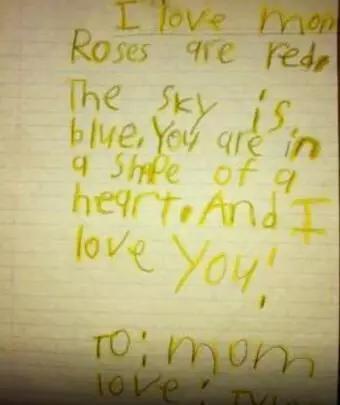 I love mom
Roses are red.
The sky is
blue. You are in
a shape of a
heart. And I
love You!
TO: mom
love: